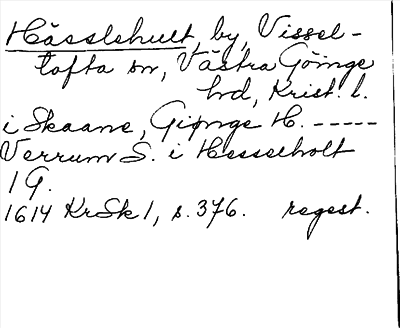 Hässlehult by, Vissel-
tofta sn, Västra Göinge
hd, Krist. l.
i Skaane, Giønge H. -----
Verrum S. i Hesselholt
1 G.
1614 KrSk 1, s. 376. regest.